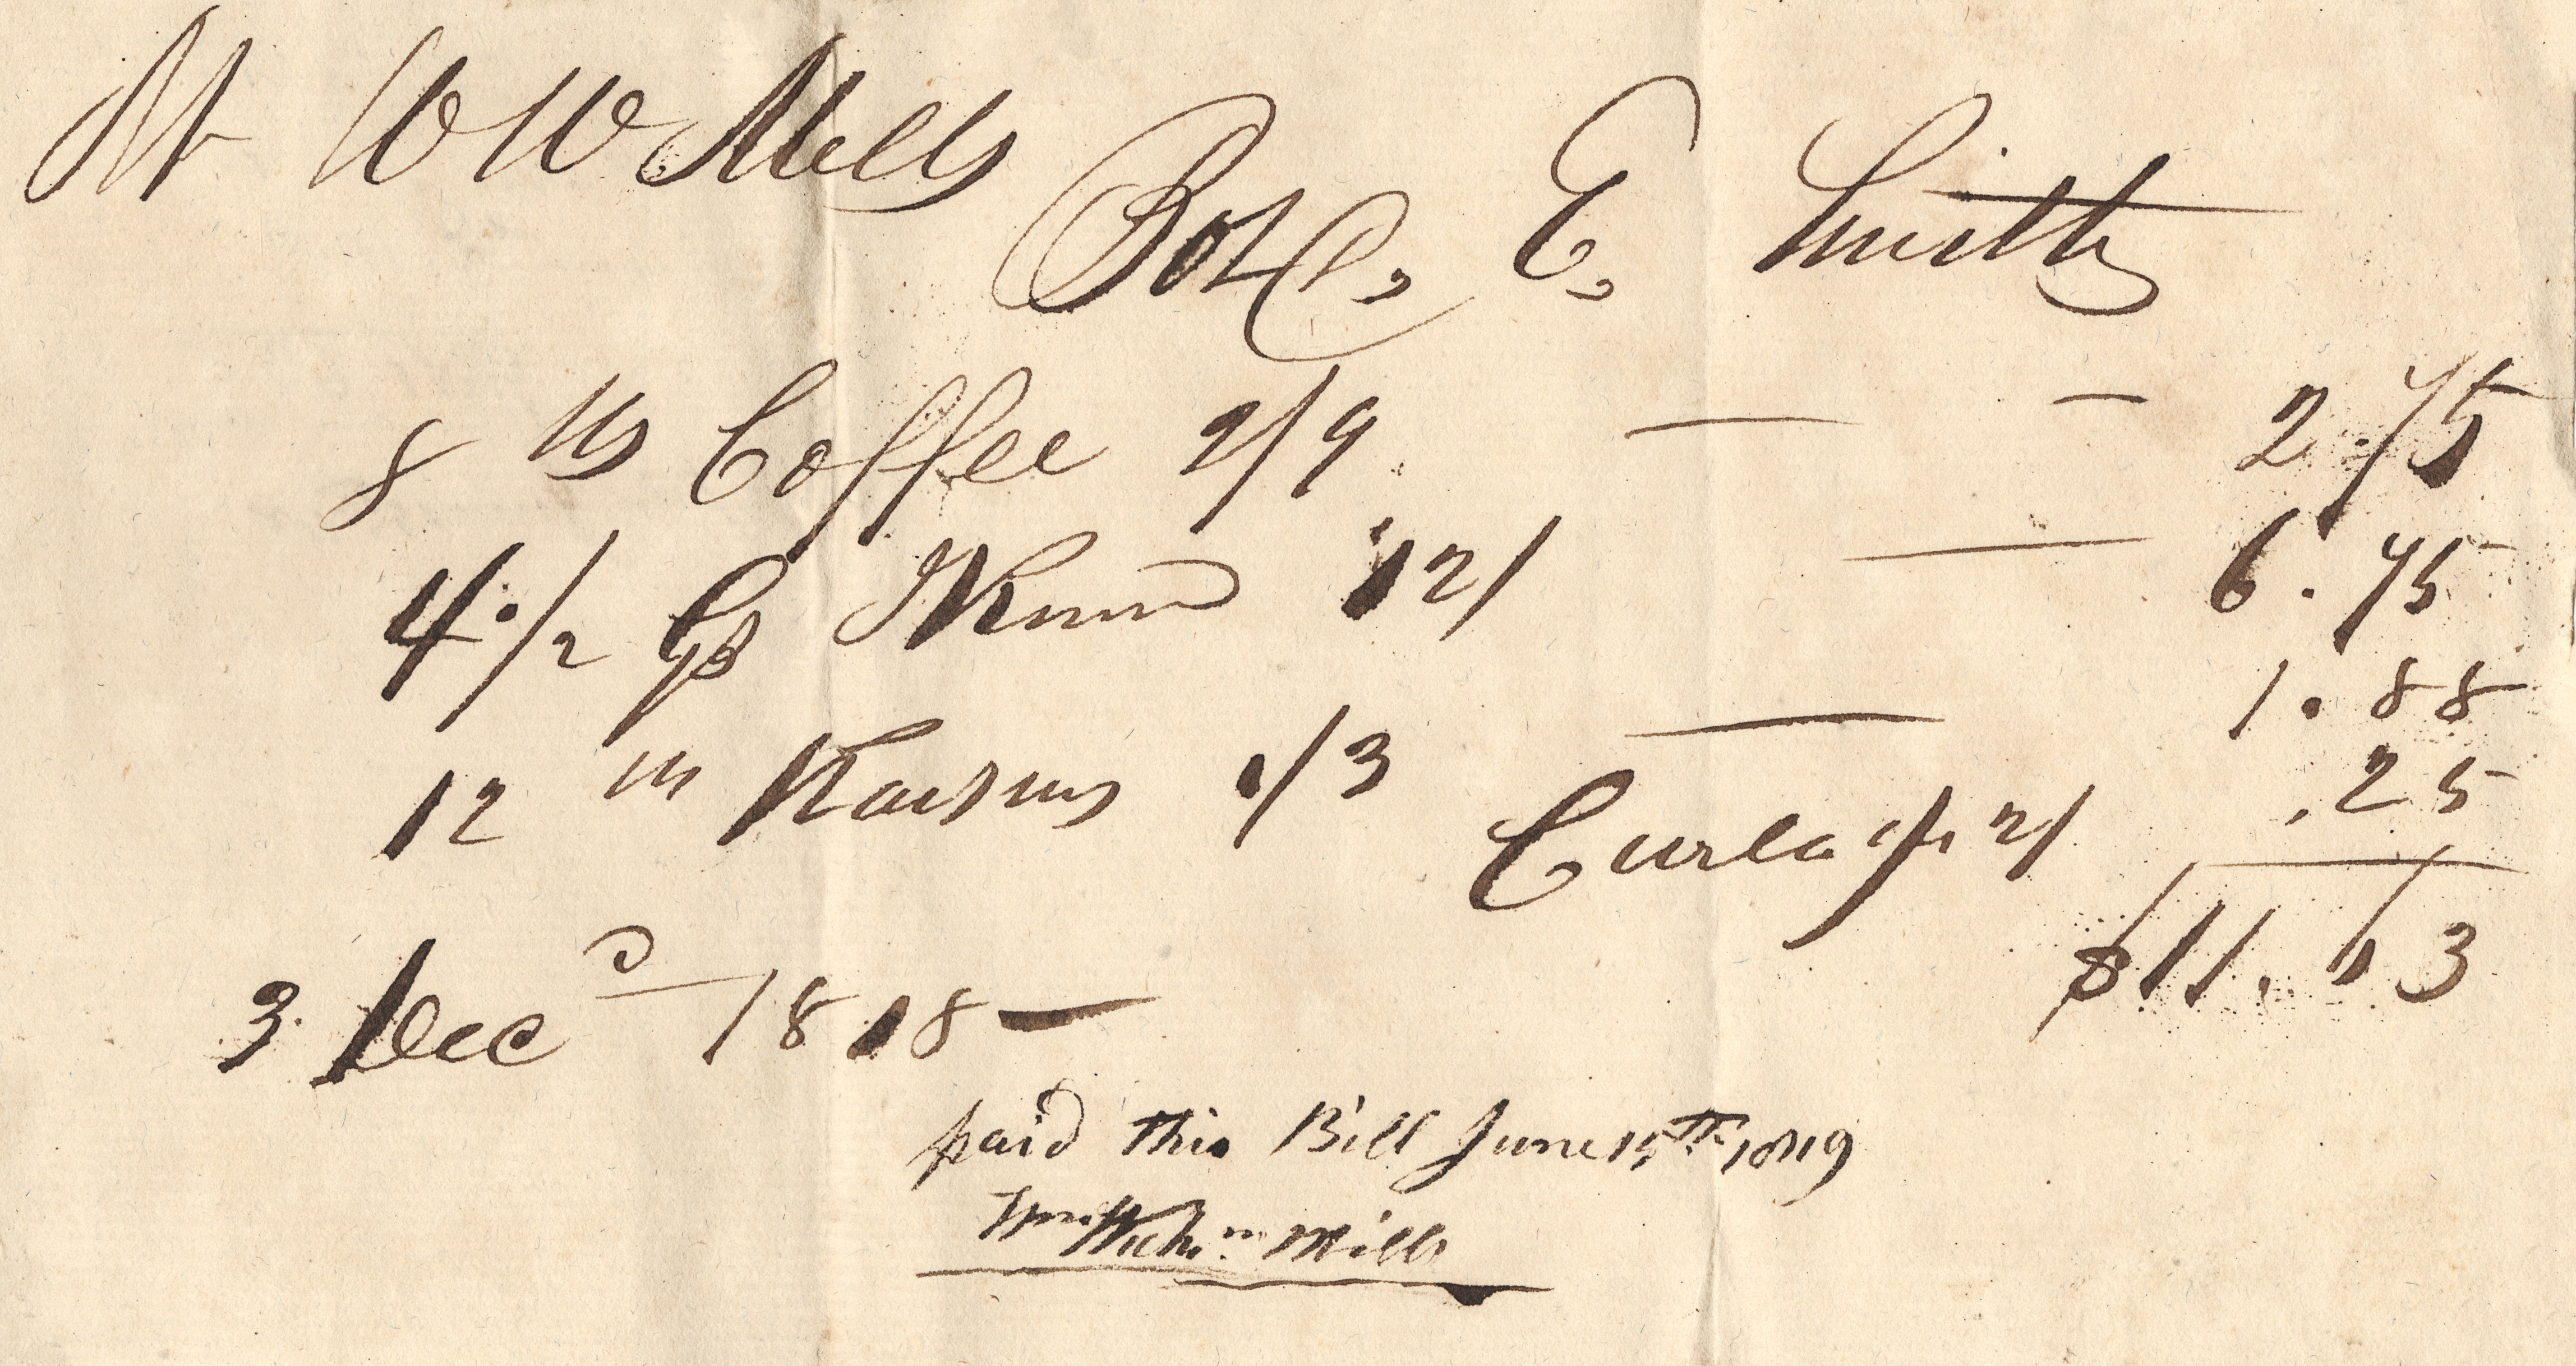 Mr W W Mills
Bot of E. Smith
8 lbs Coffee 2/9 — — 2.75
4 1/2 Gs Rum 12/ — 6.75
12 lbs Raisins 1/3 — 1.88
Cartage 2/ .25
$11.63
3 Dec 1818 —
paid this Bill June 15th 1819
Mills